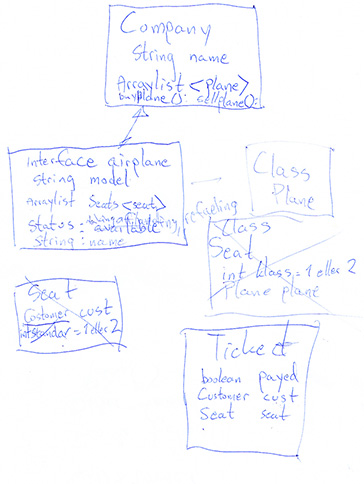 Company
String name
Arraylist <plane>
buyplane(): sellplane():
Interface airplane
String model
Arraylist Seats<seat>
Status: available
refueling
String: name
Class
Plane
Class
Seat
int klass = 1 eller 2
Plane plane
Seat
Customer cust
= 1 eller 2
Ticket
boolean payed
Customer cust
Seat seat